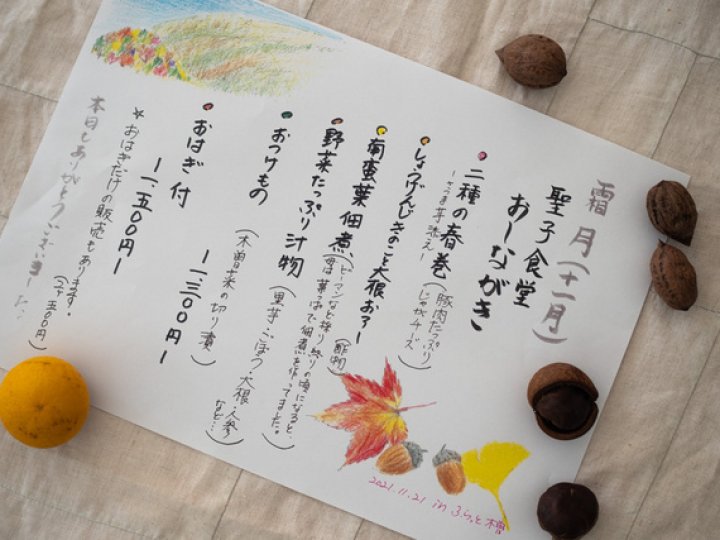 霜月(十一月)
聖子食堂
おしながき
二種の春巻(豚肉たっぷり
じゃがチーズ)
ーさつま芋添えー
しょうげんじきのこと大根おろし
(酢物)
南蛮葉佃煮
(ピーマンなど採り終りの頃になると、
母は葉っぱで佃煮を作ってました。)
野菜たっぷり汁物
(里芋・ごぼう・大根・人参
など…)
おつけもの(木曽菜の切り漬)
ー一、三〇〇円ー
おはぎ付
ー一、五〇〇円ー
*おはぎだけの販売もあります。
(五〇〇円)
本日もありがとうございました
2021.11.21 in ふらっと木曽